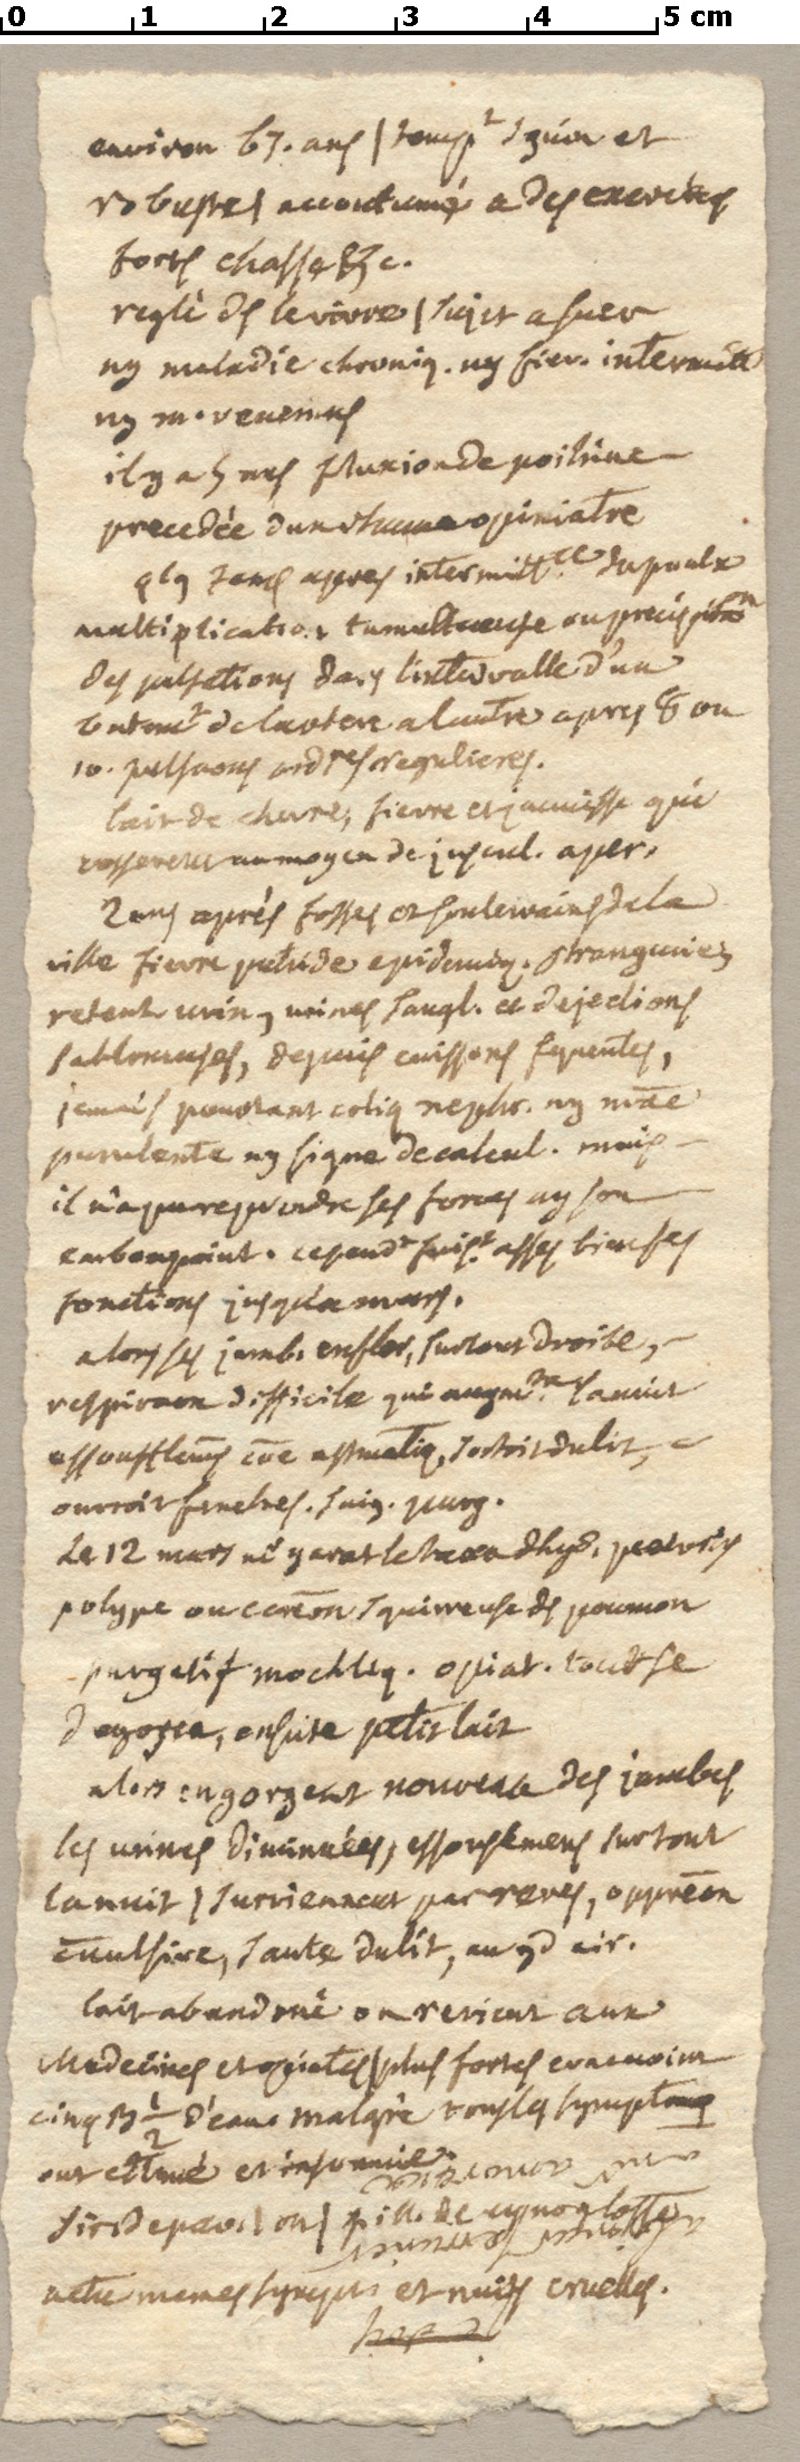 0 1 2 3 4 5 cm
environ 67. ans | temp^t sguin et
robuste | accoutumé a des exercices
forts chasse &c.
reglé ds le vivre | sujet a suer
ny maladie chroniq. ny fiev. intermitte
ny
il y a 5 ans fluxion de poitrine
precedée dun rhume opiniatre
qlq tems apres intermitt^ce du poulx
multiplication tumultueuse ou precipitaon
des pulsations dans lintervalle d'un
batem^t de lartere a lautre apres 8 ou
10. pulsaons ord^res regulieres.
lait de chevre, fievre et jaunisse qui
cesserent au moyen de juscul. aper.
2 ans après fosses et souterrains de la
ville fievre putride epidemiq. strangurie,
retent. urin, urines sangl. et dejections
sabloneuses, depuis cuissons frequentes,
jamais pourtant coliq nephr. ny mãe
purulente ny signe de calcul. mais
il n'a pu reprendre ses forces ny son
embonpoint. cepend^t fais^t asses bien ses
fonctions jusqu'a mars.
alors ses jamb. enfler, surtout droite,
respiraon difficile qui augm^ta la nuit
essouflems cõe astmatiq, sortoit du lit,
ouvroit fenetres. saig. purg.
Le 12 mars
polype ou squirreuse ds poumon
purgatif mochliq. opiat. tout se
degorgea, ensuite petit lait
alors engorgent nouveau des jambes
les urines diminuées, essouflemens surtout
la nuit | surviennent par reves, oppreõn
cõvulsive, saute du lit, au gd air.
lait abandoné on revient aux
Medecines et opiates | plus fortes evacuoient
cinq ℔ 1/2 d'eau malgré tous les symptomes
ont et insomnie.
sir de pavot ou | pill. de cynoglosse
memes sympt. et nuits cruelles.